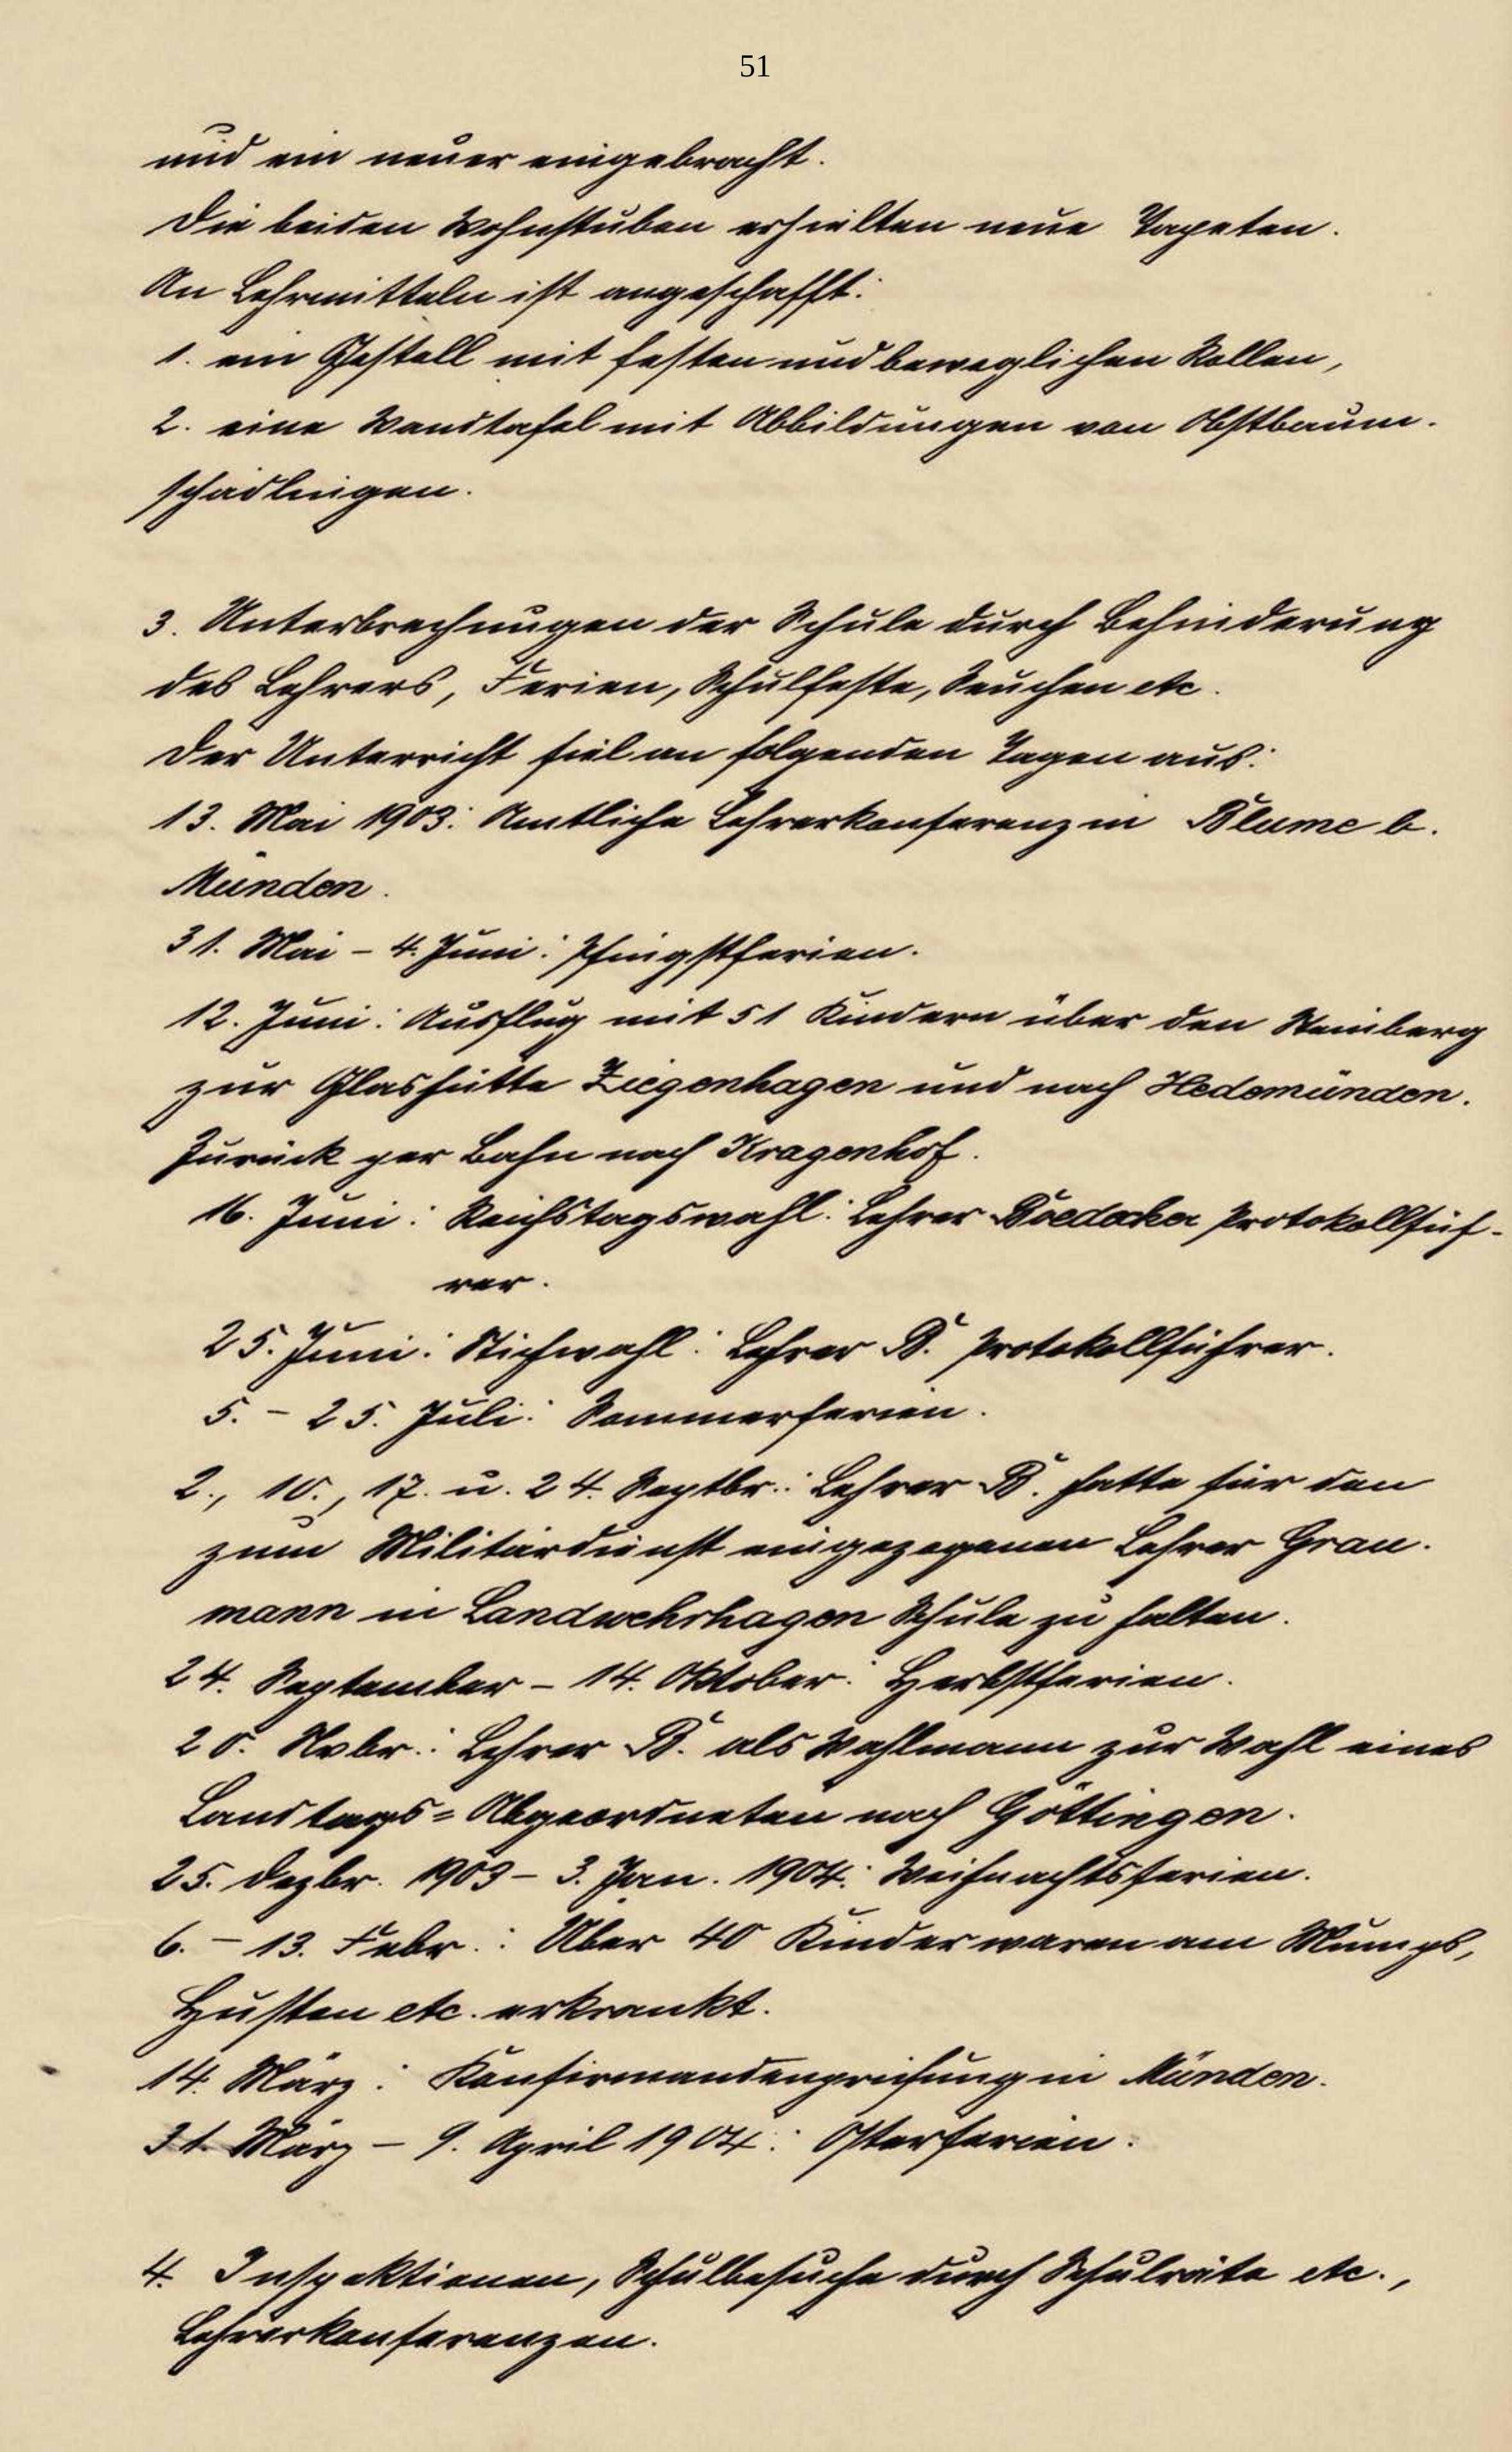 51
und ein neuer eingebracht.
Die beiden Wohnstuben erhielten neue Tapeten.
An Lehrmitteln ist angeschafft:
1. ein Gestell mit festen und beweglichen Rollen,
2. eine Wandtafel mit Abbildungen von Obstbaum-
schädlingen.
3. Unterbrechungen der Schule durch Behinderung
des Lehrers, Ferien, Schulfeste, Seuchen etc.
Der Unterricht fiel an folgenden Tagen aus:
13. Mai 1903: Amtliche Lehrerkonferenz in Blume b.
Münden.
31. Mai – 4. Juni: Pfingstferien.
12. Juni: Ausflug mit 51 Kindern über den Steinberg
zur Glashütte Ziegenhagen und nach Hedemünden.
Zurück per Bahn nach Kragenhof.
16. Juni: Reichstagswahl: Lehrer Boedecker Protokollfüh-
rer.
25. Juni: Stichwahl: Lehrer B. Protokollführer.
5. – 25. Juli: Sommerferien.
2., 10., 17. u. 24. Septbr.: Lehrer B. hatte für den
zum Militärdienst eingezogenen Lehrer Grau-
mann in Landwehrhagen Schule zu halten.
24. September – 14. Oktober: Herbstferien.
20. Nvbr.: Lehrer B. als Wahlmann zur Wahl eines
Landtags=Abgeordneten nach Göttingen.
25. Dezbr. 1903 – 3. Jan. 1904: Weihnachtsferien.
6. – 13. Febr.: Über 40 Kinder waren am Mumps,
Husten etc. erkrankt.
14. März: Konfirmandenprüfung in Münden.
31. März – 9. April 1904: Osterferien.
4. Inspektionen, Schulbesuche durch Schulräte etc.,
Lehrerkonferenzen.